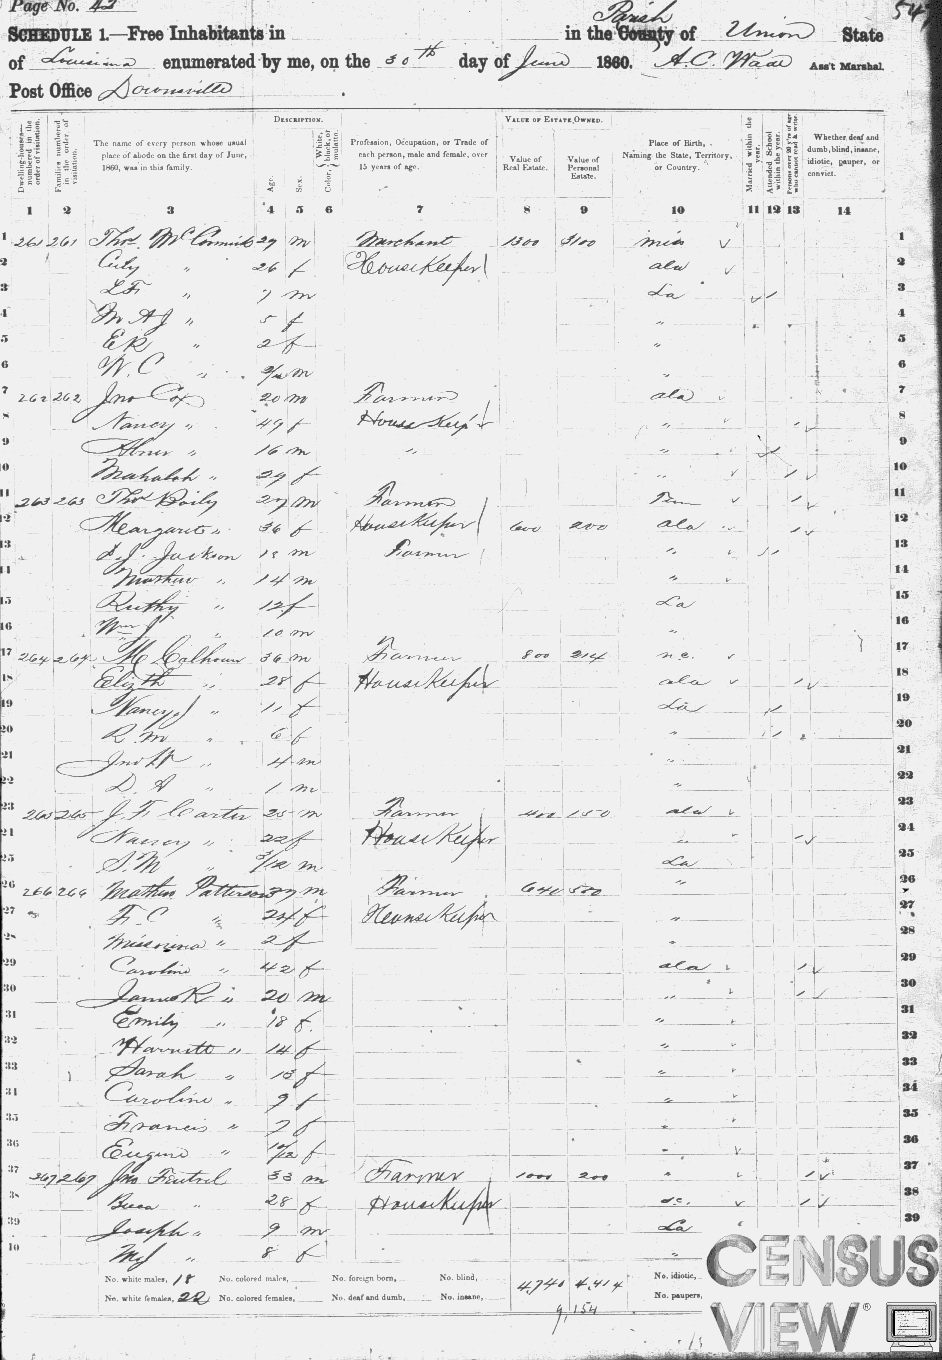 Page No. 43
54
SCHEDULE 1.—Free Inhabitants in in the County Parish of Union State
of Louisiana enumerated by me, on the 30th day of June 1860. A.C. Wade Ass't Marshal.
Post Office Downsville
DESCRIPTION. VALUE OF ESTATE OWNED.
Dwelling-houses—numbered in the order of visitation. Families numbered in the order of visitation. The name of every person whose usual place of abode on the first day of June, 1860, was in this family. Age. Sex. Color, White, black, or mulatto. Profession, Occupation, or Trade of each person, male and female, over 15 years of age. Value of Real Estate. Value of Personal Estate. Place of Birth, Naming the State, Territory, or Country. Married within the year. Attended School within the year. Persons over 20 y'rs of age who cannot read & write. Whether deaf and dumb, blind, insane, idiotic, pauper, or convict.
1 2 3 4 5 6 7 8 9 10 11 12 13 14
1 261 261 Thos. McCormick 29 m Merchant 1300 3100 miss 1
2 " 26 f HouseKeeper ala 2
3 L F " 7 m La / 3
4 M A J " 5 f " 4
5 E R " 2 f " 5
6 W. C " m " 6
7 262 262 Jno Cox 20 m Farmer ala 7
8 Nancy " 49 f House Keep'r " / 8
9 Abner " 16 m " " / 9
10 Mahalah " 29 f " / 10
11 263 263 Thos Baily 27 m Farmer Tenn / 11
12 Margaret " 36 f HouseKeeper 600 200 ala / 12
13 Jackson m Farmer " / 13
14 Mathew " 14 m " 14
15 Ruthy " 12 f La 15
16 Wm J " 10 m " 16
17 264 264 M Calhoun 36 m Farmer 800 214 n.c. 17
18 Elizth " 28 f HouseKeeper ala / 18
19 Nancy J " 11 f La / 19
20 R. M " 6 f " / 20
21 Jno W " 4 m " 21
22 D. A " 1 m " 22
23 265 265 J. F. Carter 25 m Farmer 400 150 ala 23
24 Nancy " 22 f HouseKeeper " / 24
25 S. M 3/12 m La 25
26 266 266 Mathew Patterson 27 m Farmer 640 500 " 26
27 F. C " 24 f HouseKeeper " 27
28 Missourina " 2 f " 28
29 Caroline " 42 f ala / 29
30 James R " 20 m " / 30
31 Emily " 18 f. " 31
32 Harriett " 14 f " 32
33 Sarah " 13 f " 33
34 Caroline " 9 f " 34
35 Francis " 7 f " 35
36 Eugene " f " 36
37 267 267 Jno Feutrel 33 m Farmer 1000 200 " / 37
38 Beca " 28 f HouseKeeper s.c. / 38
39 Joseph " 9 m La 39
40 M J " 8 f "
No. white males, 18 No. colored males, No. foreign born, No. blind, 4,740 4,414 No. idiotic,
No. white females, 22 No. colored females, No. deaf and dumb, No. insane, No. paupers,
9,154
CENSUS
VIEW®